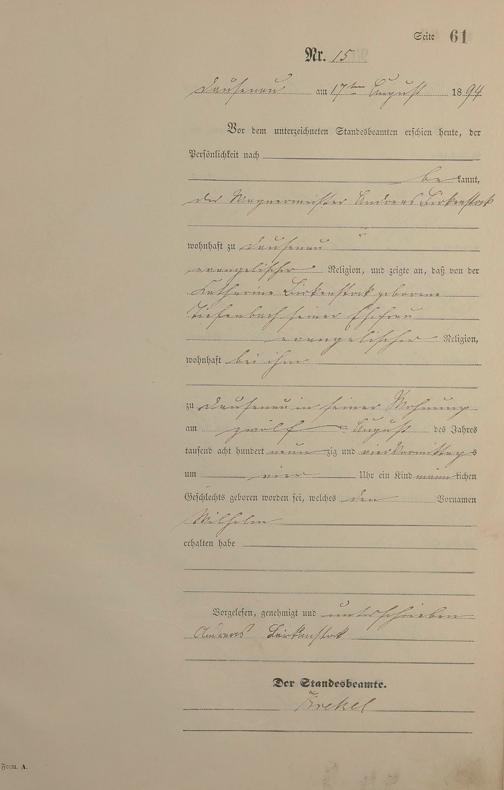 Seite 61
Nr. 15
Dausenau am 17ten August 1894
Vor dem unterzeichneten Standesbeamten erschien heute, der
Persönlichkeit nach
bekannt,
der Wagnermeister Andreas Birkenstock
wohnhaft zu Dausenau
evangelischer Religion, und zeigte an, daß von der
Katharine Birkenstock geborene
Tiefenbach seiner Ehefrau
evangelischer Religion,
wohnhaft bei ihm
zu Dausenau in seiner Wohnung
am zwölf August des Jahres
tausend acht hundert neunzig und vier Vormittags
um vier Uhr ein Kind männlichen
Geschlechts geboren worden sei, welches den Vornamen
Wilhelm
erhalten habe
Vorgelesen, genehmigt und unterschrieben
Andreas Birkenstock
Der Standesbeamte.
Form. A.